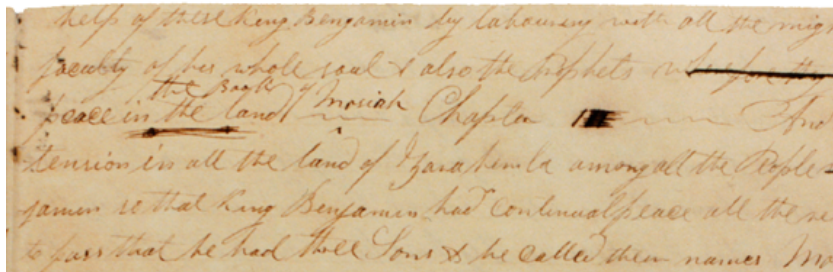 help of these King Benjamin by labouring with all the mig
faculty of his whole soul & also the Prophets wherefore they
the Book of
peace in the land Mosiah Chapter III And
tension in all the land of Zarahemla among all the People
jamin so that King Benjamin had continual peace all the re
to pass that he had three Sons & he called their names Mo